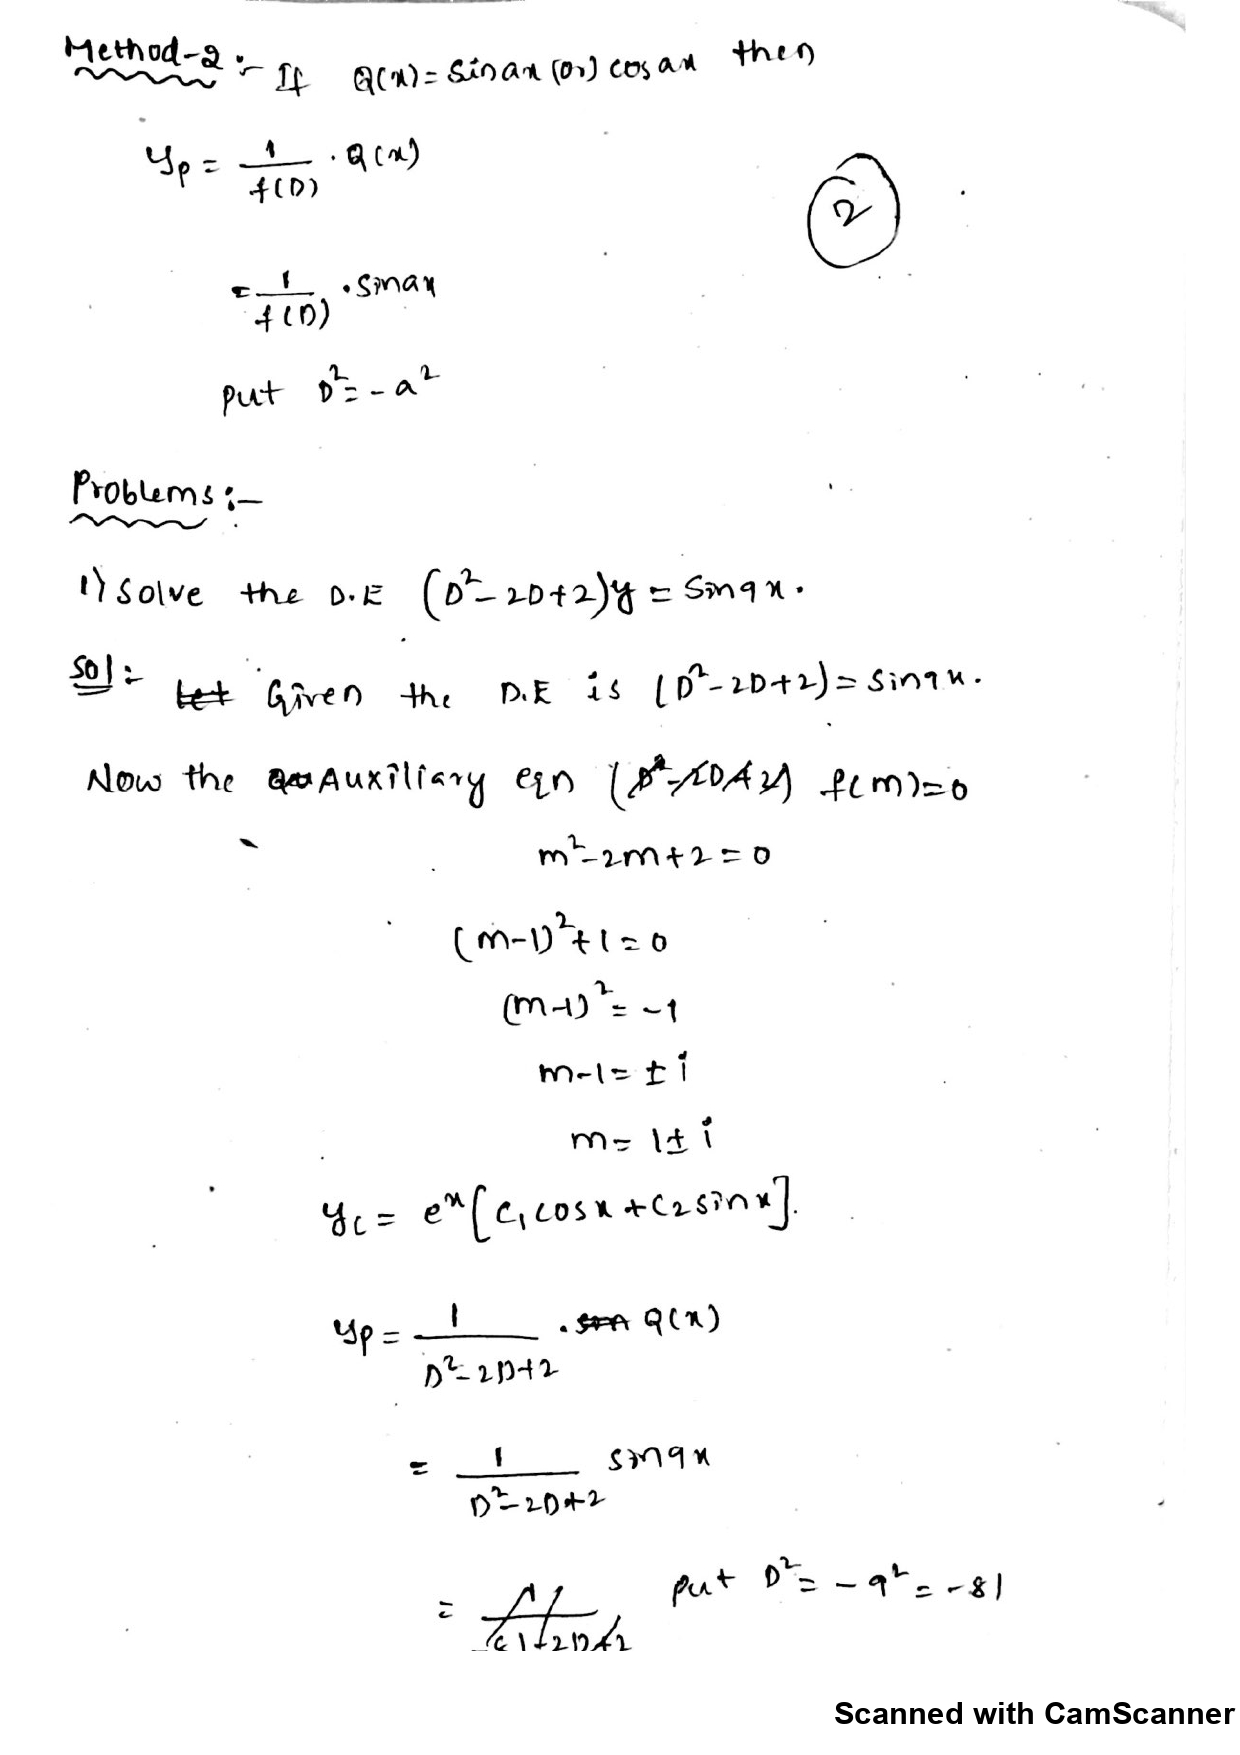 Method-2 :- If Q(x) = sin ax (or) cos ax then
yp = 1/f(D) · Q(x)
2
= 1/f(D) · sin ax
put D² = -a²
Problems :-
1) Solve the D.E (D² - 2D + 2)y = sin 9x.
Sol :- Let Given the D.E is (D² - 2D + 2) = sin 9x.
Now the Auxiliary eqn (D² - 2D + 2) f(m) = 0
m² - 2m + 2 = 0
(m-1)² + 1 = 0
(m-1)² = -1
m - 1 = ± i
m = 1 ± i
yc = e^x [c₁ cos x + c₂ sin x].
yp = 1/(D² - 2D + 2) · sin Q(x)
= 1/(D² - 2D + 2) sin 9x
= put D² = -9² = -81
Scanned with CamScanner